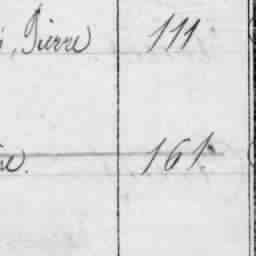 Pierre 111
161.